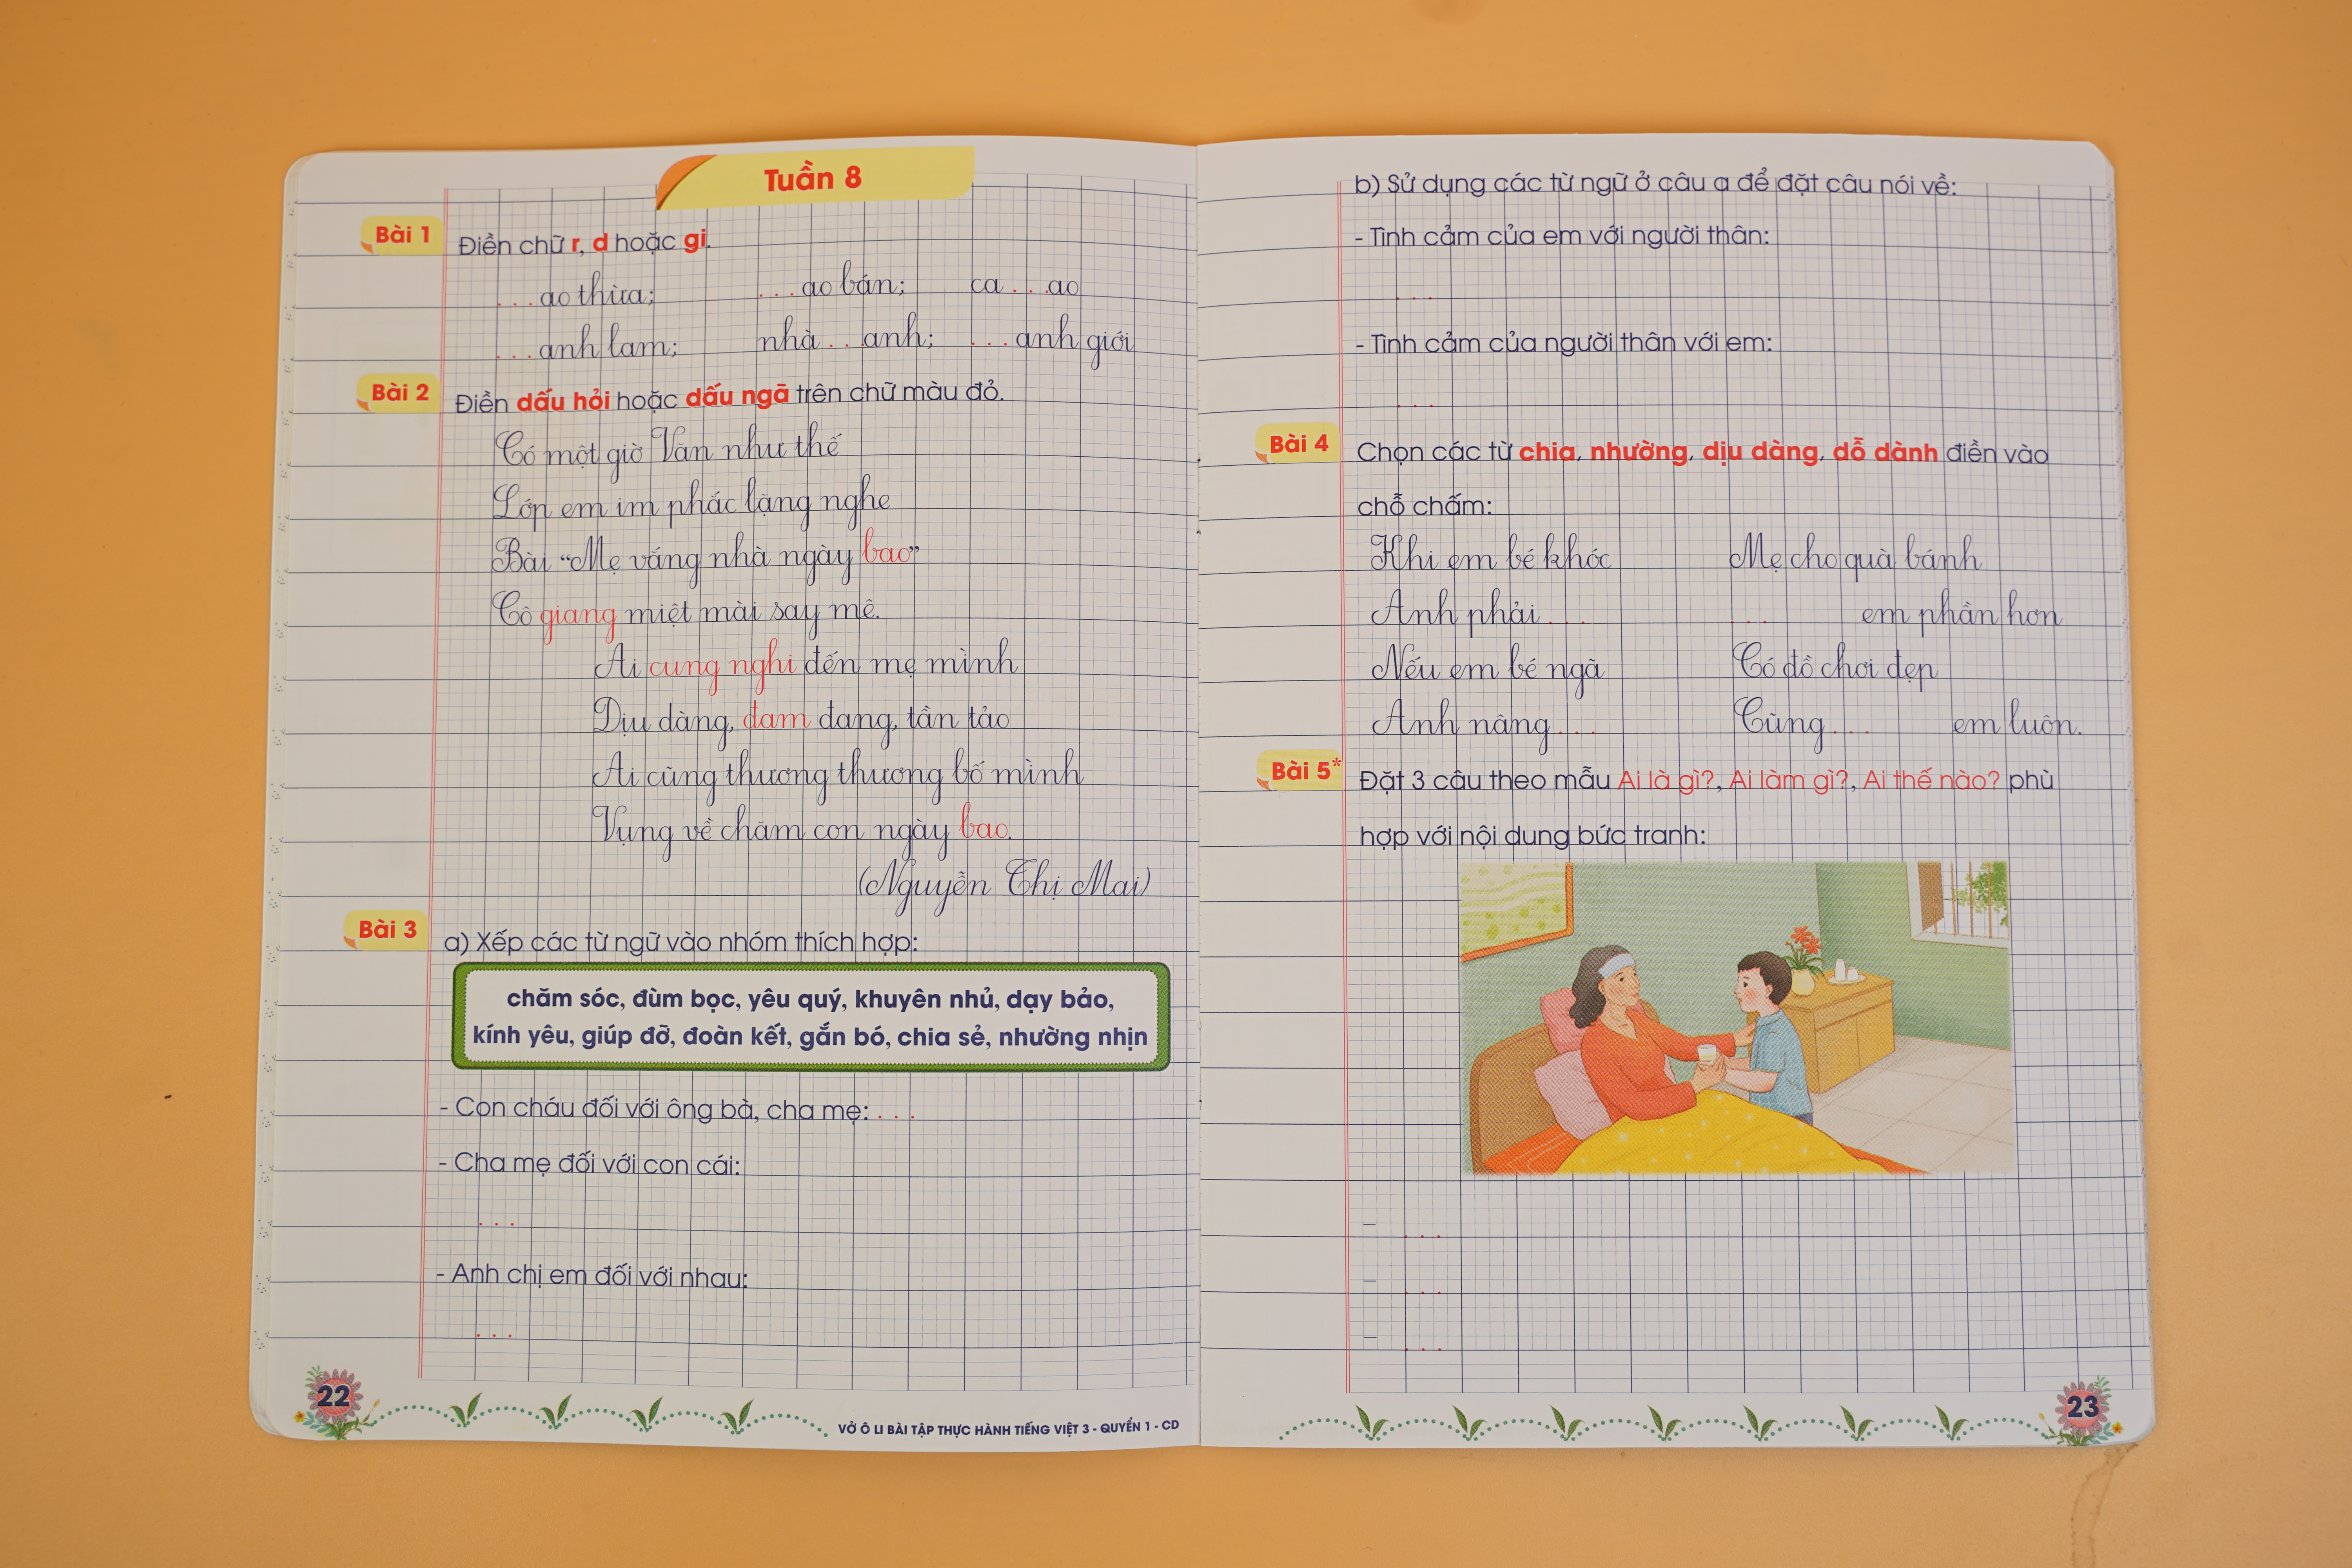 Tuần 8
Bài 1 Điền chữ r, d hoặc gi.
...ao thừa; ...ao bán; ca ...ao
...anh lam; nhà ...anh; ...anh giới
Bài 2 Điền dấu hỏi hoặc dấu ngã trên chữ màu đỏ.
Có một giờ Văn như thế
Lớp em im phắc lặng nghe
Bài “Mẹ vắng nhà ngày bao”
Cô giang miệt mài say mê.
Ai cung nghi đến mẹ mình
Dịu dàng, đam đang, tần tảo
Ai cũng thương thương bố mình
Vụng về chăm con ngày bao.
(Nguyễn Thị Mai)
Bài 3 a) Xếp các từ ngữ vào nhóm thích hợp:
chăm sóc, đùm bọc, yêu quý, khuyên nhủ, dạy bảo,
kính yêu, giúp đỡ, đoàn kết, gắn bó, chia sẻ, nhường nhịn
- Con cháu đối với ông bà, cha mẹ: ...
- Cha mẹ đối với con cái:
...
- Anh chị em đối với nhau:
...
22
VỞ Ô LI BÀI TẬP THỰC HÀNH TIẾNG VIỆT 3 - QUYỂN 1 - CD
b) Sử dụng các từ ngữ ở câu a để đặt câu nói về:
- Tình cảm của em với người thân:
...
- Tình cảm của người thân với em:
...
Bài 4 Chọn các từ chia, nhường, dịu dàng, dỗ dành điền vào
chỗ chấm:
Khi em bé khóc Mẹ cho quà bánh
Anh phải ... ... em phần hơn
Nếu em bé ngã Có đồ chơi đẹp
Anh nâng ... Cũng ... em luôn.
Bài 5* Đặt 3 câu theo mẫu Ai là gì?, Ai làm gì?, Ai thế nào? phù
hợp với nội dung bức tranh:
- ...
- ...
- ...
23